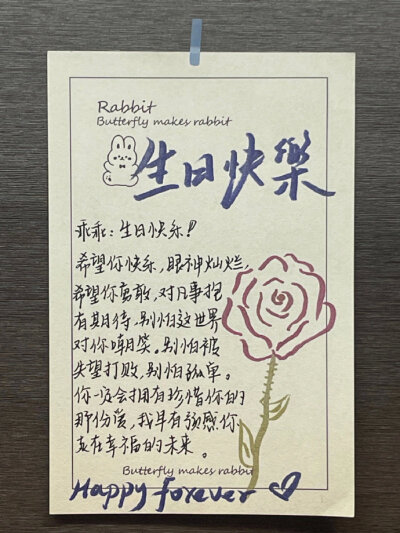 Rabbit
Butterfly makes rabbit
生日快樂
乖乖:生日快乐!
希望你快乐,眼神灿烂,
希望你勇敢,对凡事抱
有期待,别怕这世界
对你嘲笑。别怕被
失望打败,别怕孤单。
你一定会拥有珍惜你的
那份爱,我早有预感你
站在幸福的未来。
Butterfly makes rabbit
Happy forever